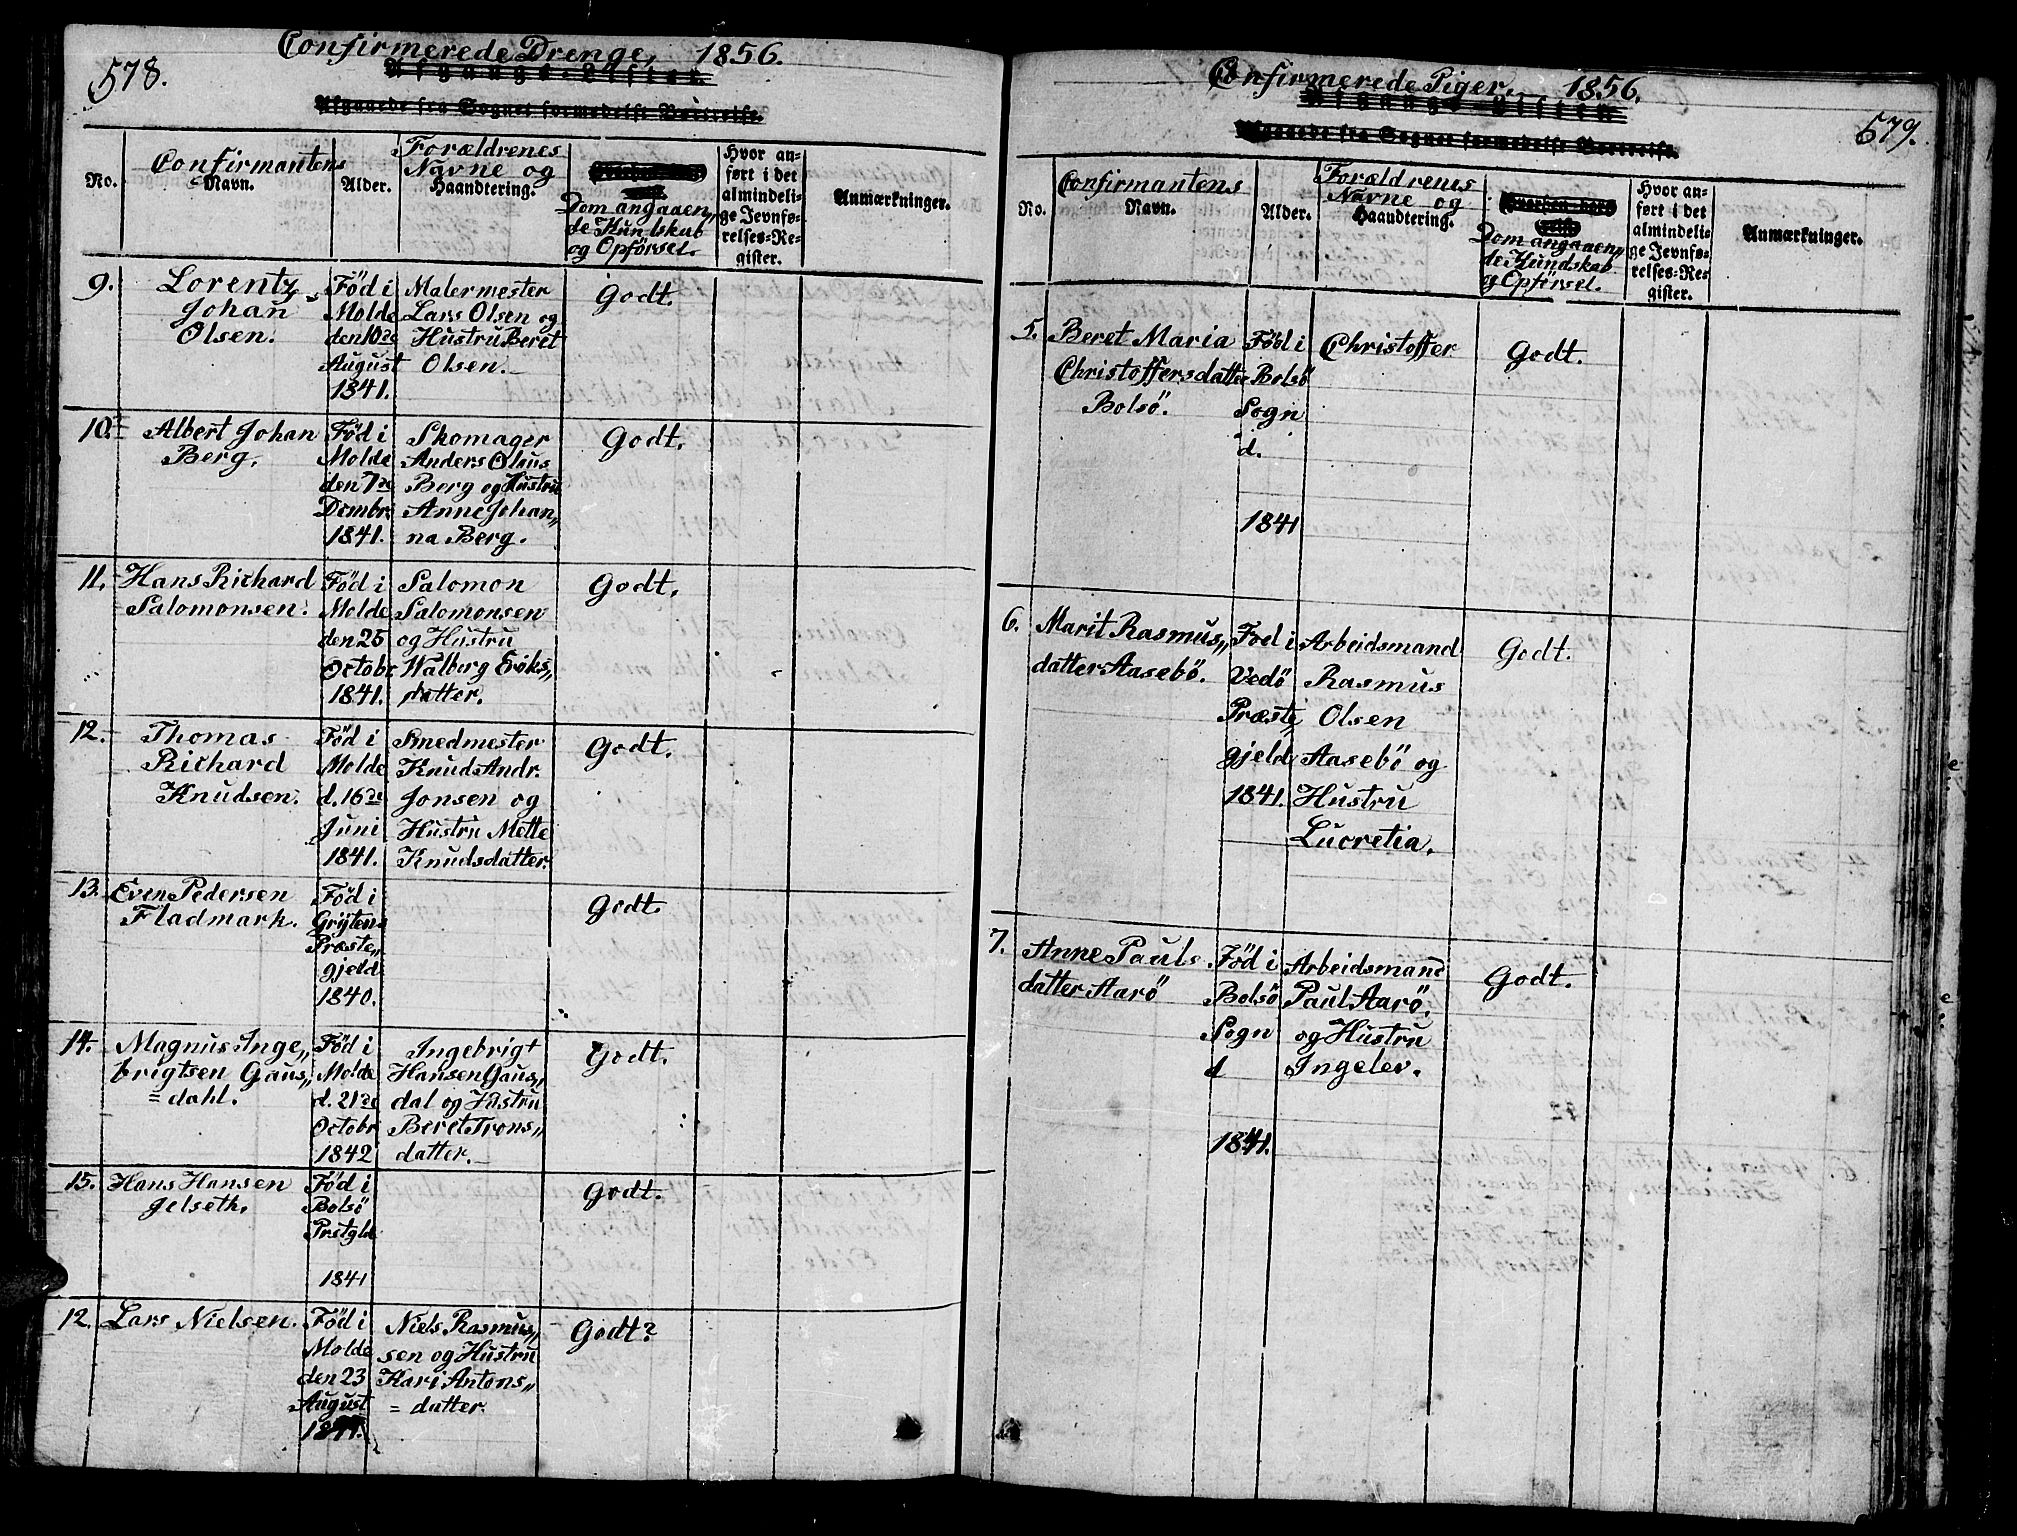 578.
Confirmerede Drenge, 1856.
Afgangs-Listen
Afgaaede fra Sognet formedelst Bortreise.
No.
Confirmantens
Navn.
Alder.
Forældrenes
Navne og
Haandtering.
Dom angaaen„
de Kundskab
og Opförsel.
Hvor an-
ført i det
almindeli-
ge Jevnfø-
relses-Re-
gister.
Anmærkninger.
9.
Lorentz
Johan
Olsen.
Föd i
Molde
den 10de
August
1841.
Malermester
Lars Olsen og
Hustru Beret
Olsen.
Godt.
10.
Albert Johan
Berg.
Föd i
Molde
den 7de
Dcmbr.
1841.
Skomager
Anders Olaus
Berg og Hustru
Anne Johan„
na Berg.
Godt.
11.
Hans Richard
Salomonsen.
Föd i
Molde
den 25
Octobr
1841.
Salomon
Salomonsen
og Hustru
Walberg Eriks„
datter.
Godt.
12.
Thomas
Richard
Knudsen.
Föd i
Molde
d. 16de
Juni
1841.
Smedmester
Knud Andr.
Jonsen og
Hustru Mette
Knudsdatter.
Godt.
13.
Even Pedersen
Fladmark.
Föd i
Grytens
Præste„
gjeld
1840.
Godt.
14.
Magnus Inge„
brigtsen Gaus„
= dahl.
Föd i
Molde
d. 21de
Octobr
1842
Ingebrigt
Hansen Gaus„
dal og Hustru
Beret Trons„
datter.
Godt.
15.
Hans Hansen
Jelseth.
Föd i
Bolsö
Prstgld
1841
Godt.
12.
Lars Nielsen.
Föd i
Molde
den 23
August
1841.
Niels Rasmus„
sen og Hustru
Kari Antons„
= datter.
Godt?
Confirmerede Piger, 1856.
Afgangs-Listen
Afgaaede fra Sognet formedelst Bortreise.
579.
No.
Confirmantens
Navn.
Alder.
Forældrenes
Navne og
Haandtering.
Dom angaaen„
de Kundskab
og Opförsel.
Hvor an-
ført i det
almindeli-
ge Jevnfø-
relses-Re-
gister.
Anmærkninger.
5.
Beret Maria
Christoffersdatter
Bolsö.
Föd i
Bolsö
Sogn
d.
1841
Christoffer
Godt.
6.
Marit Rasmus„
datter Aasebö.
Föd i
Vedö
Præste„
gjeld
1841.
Arbeidsmand
Rasmus
Olsen
Aasebö og
Hustru
Lucretia.
Godt.
7.
Anne Pauls
datter Aarö
Föd i
Bolsö
Sogn
d
1841.
Arbeidsmand
Paul Aarö,
og Hustru
Ingelev.
Godt.